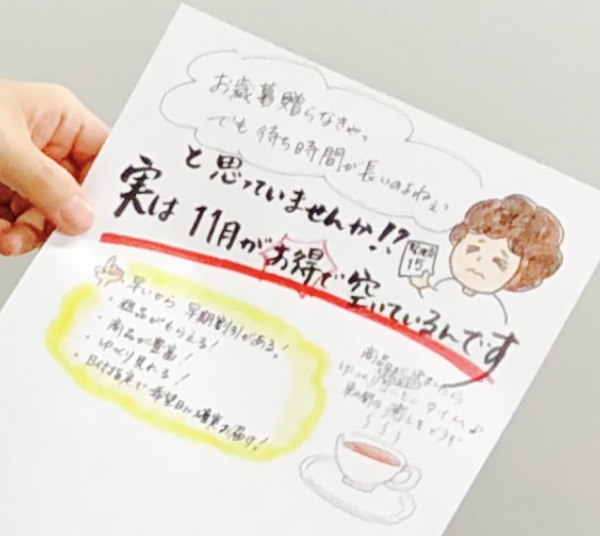 お歳暮贈らなきゃっ
でも待ち時間が長いのよねぇ
と思っていませんか!?
実は11月がお得で空いているんです
早いから早期割引がある!
・粗品がもらえる!
・商品が豊富!
・ゆっくり見れる!
・日付指定で希望日に確実お届け!
ゆっくりティータイム♪